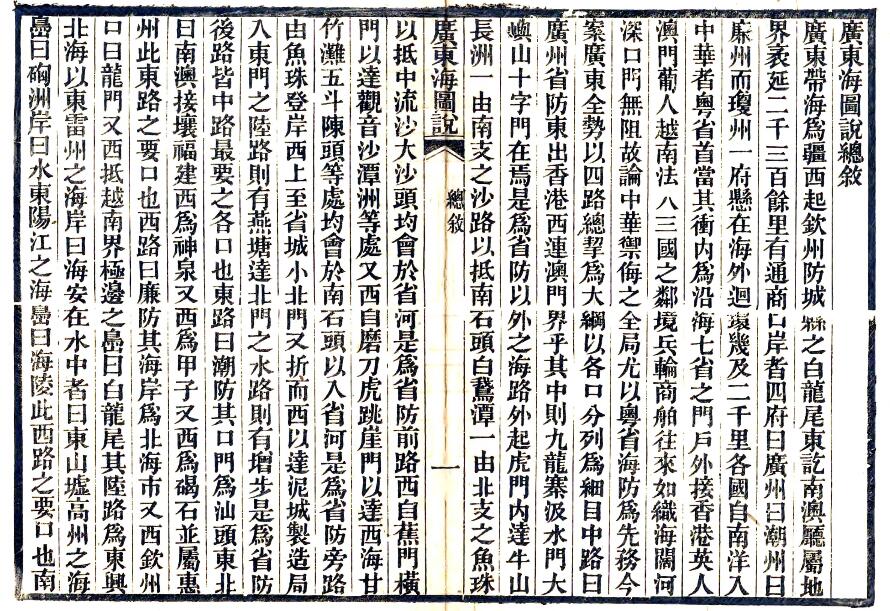 廣東海圖說總敘
廣東帶海爲疆西起欽州防城縣之白龍尾東訖南澳廳屬地
界袤延二千三百餘里有通商口岸者四府曰廣州曰潮州曰
廉州而瓊州一府懸在海外迴環幾及二千里各國自南洋入
中華者粵省首當其衝內爲沿海七省之門戶外接香港英人
澳門葡人越南法人三國之鄰境兵輪商舶往來如織海闊河
深口門無阻故論中華禦侮之全局尤以粵省海防爲先務今
案廣東全勢以四路總挈爲大綱以各口分列爲細目中路曰
廣州省防東出香港西連澳門界乎其中則九龍寨汲水門大
嶼山十字門在焉是爲省防以外之海路外起虎門內達牛山
長洲一由南支之沙路以抵南石頭白鵞潭一由北支之魚珠
廣東海圖說
總敘
一
以抵中流沙大沙頭均會於省河是爲省防前路西自蕉門橫
門以達觀音沙潭洲等處又西自磨刀虎跳崖門以達西海甘
竹灘五斗陳頭等處均會於南石頭以入省河是爲省防旁路
由魚珠登岸西上至省城小北門又折而西以達泥城製造局
入東門之陸路則有燕塘達北門之水路則有增步是爲省防
後路皆中路最要之各口也東路曰潮防其口門爲汕頭東北
曰南澳接壤福建西爲神泉又西爲甲子又西爲碣石並屬惠
州此東路之要口也西路曰廉防其海岸爲北海市又西欽州
口曰龍門又西抵越南界極邊之島曰白龍尾其陸路爲東興
北海以東雷州之海岸曰海安在水中者曰東山墟高州之海
島曰硇洲岸曰水東陽江之海島曰海陵此西路之要口也南